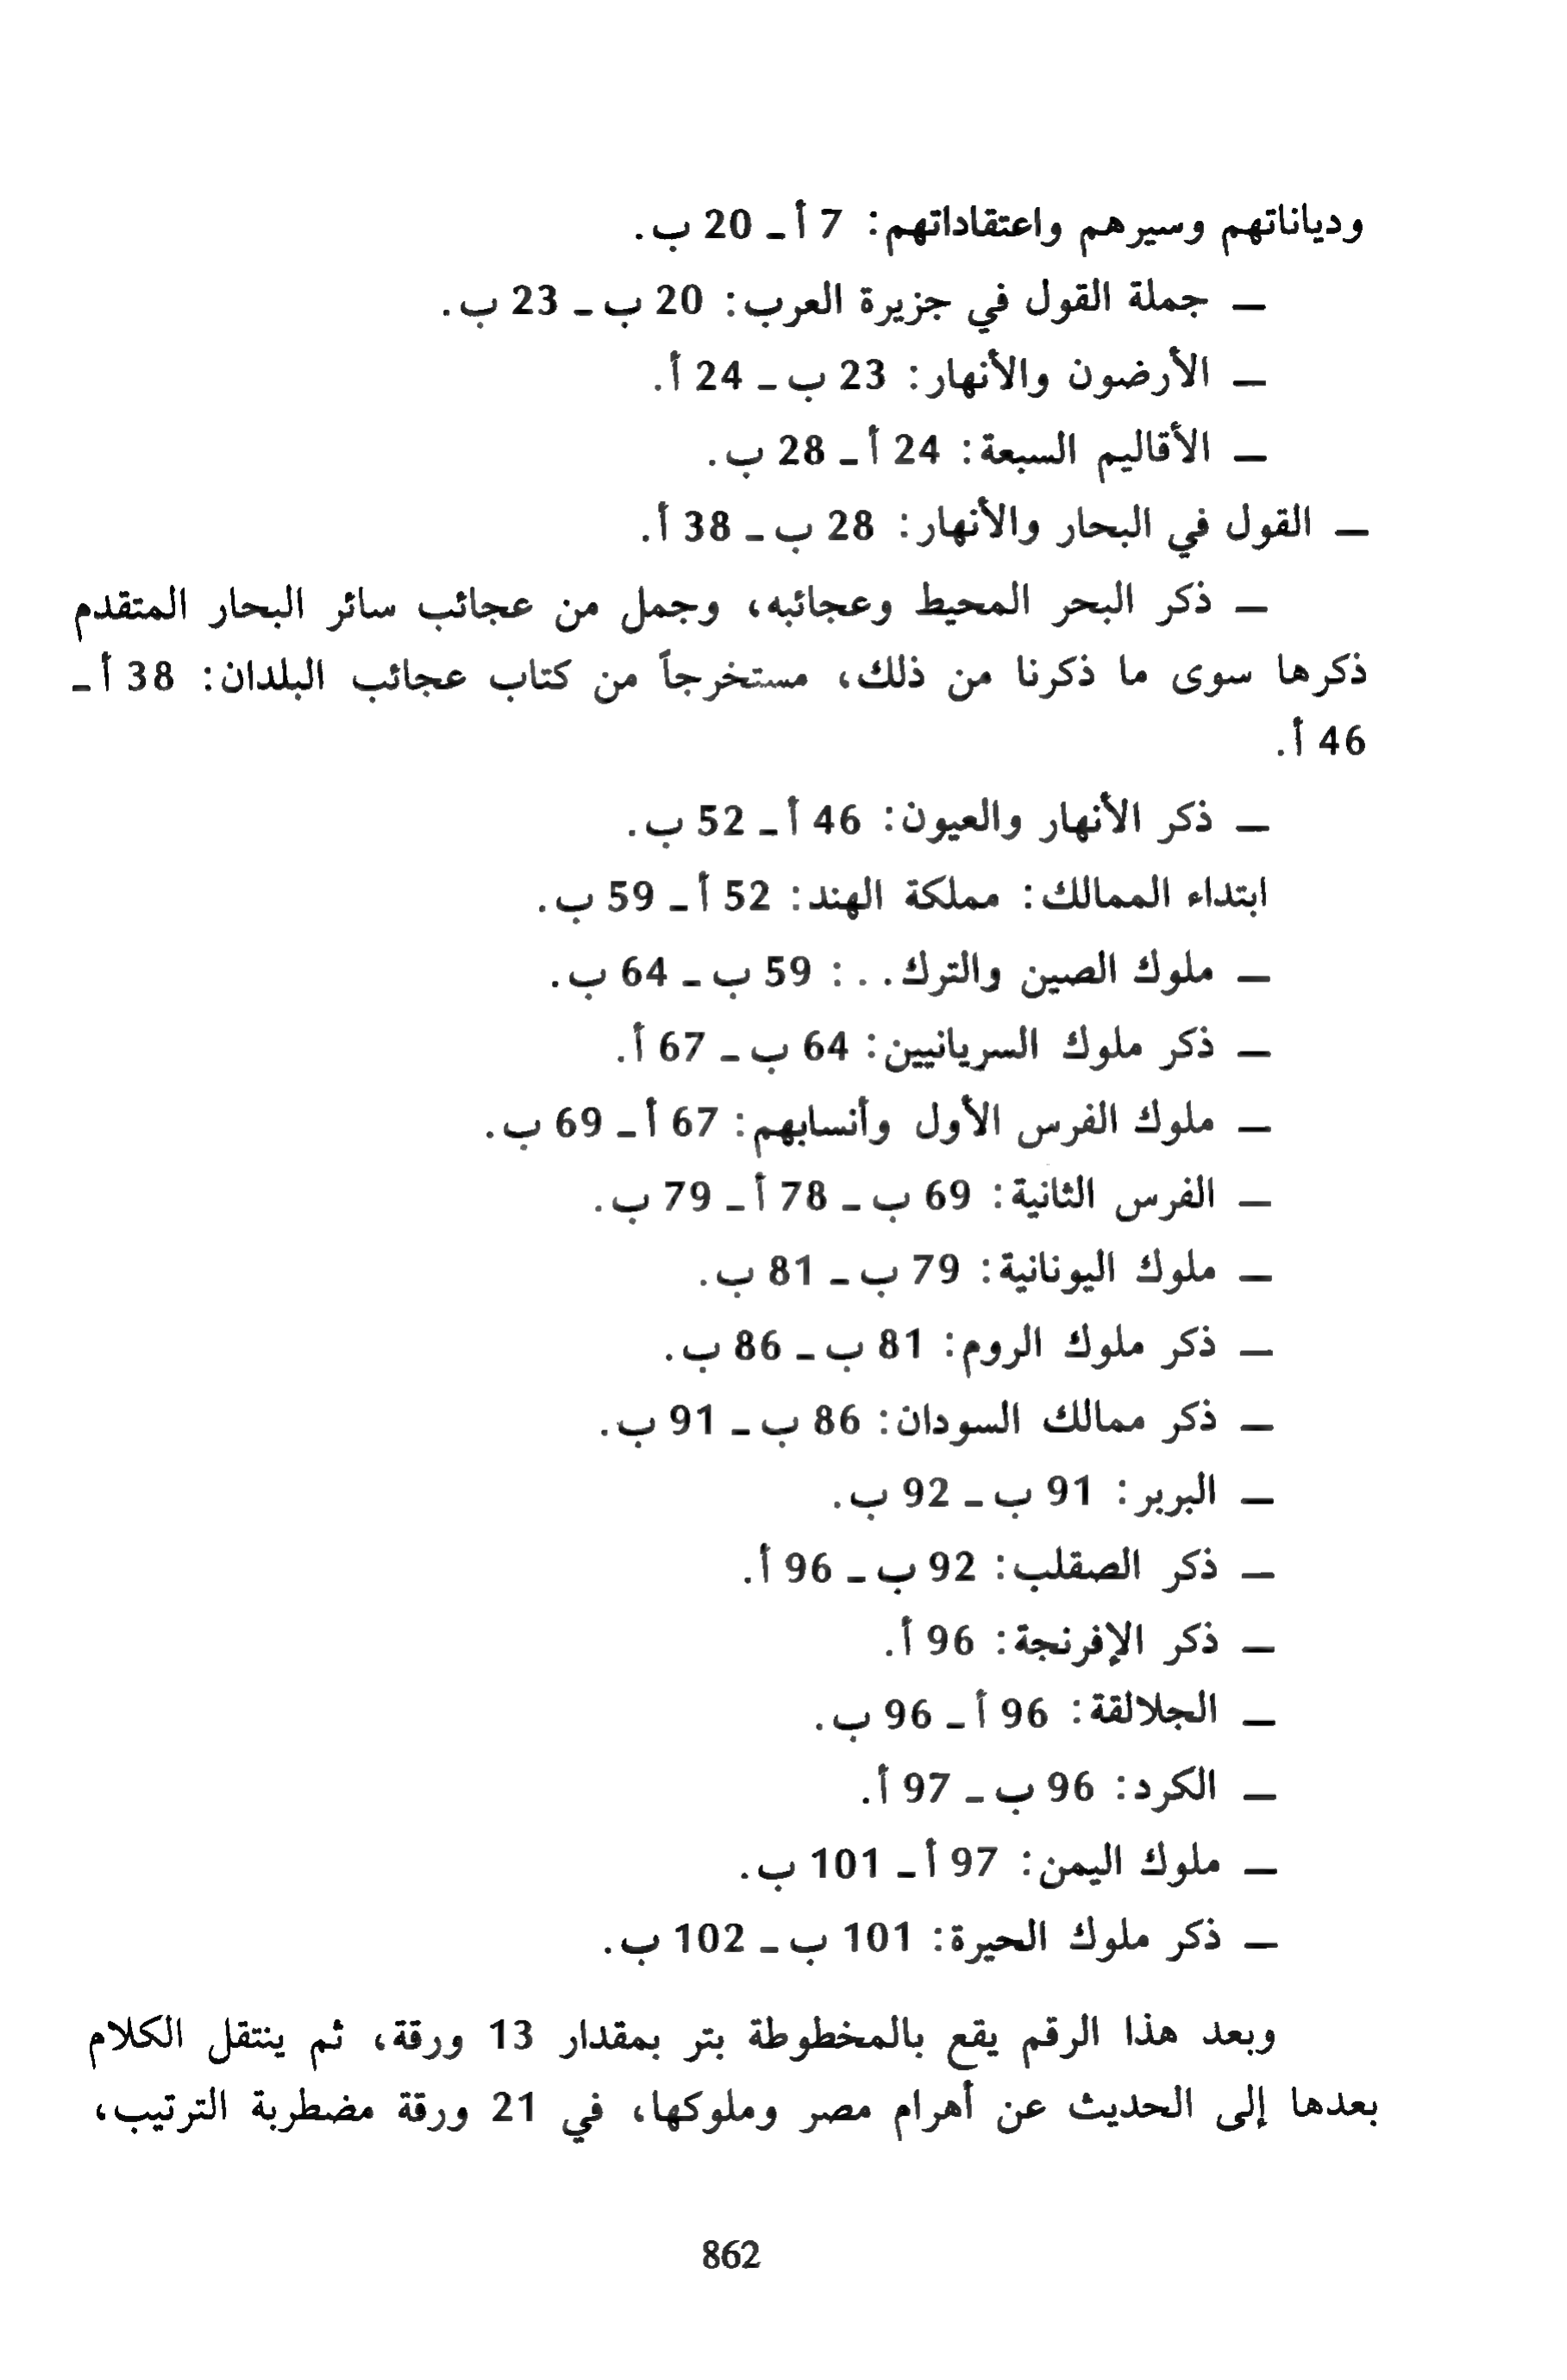 ودياناتهم وسيرهم واعتقاداتهم: 7 أ ـ 20 ب.
— جملة القول في جزيرة العرب: 20 ب ـ 23 ب.
— الأرضون والأنهار: 23 ب ـ 24 أ.
— الأقاليم السبعة: 24 أ ـ 28 ب.
— القول في البحار والأنهار: 28 ب ـ 38 أ.
— ذكر البحر المحيط وعجائبه، وجمل من عجائب سائر البحار المتقدم
ذكرها سوى ما ذكرنا من ذلك، مستخرجاً من كتاب عجائب البلدان: 38 أ ـ
46 أ.
— ذكر الأنهار والعيون: 46 أ ـ 52 ب.
ابتداء الممالك: مملكة الهند: 52 أ ـ 59 ب.
— ملوك الصين والترك..: 59 ب ـ 64 ب.
— ذكر ملوك السريانيين: 64 ب ـ 67 أ.
— ملوك الفرس الأول وأنسابهم: 67 أ ـ 69 ب.
— الفرس الثانية: 69 ب ـ 78 أ ـ 79 ب.
— ملوك اليونانية: 79 ب ـ 81 ب.
— ذكر ملوك الروم: 81 ب ـ 86 ب.
— ذكر ممالك السودان: 86 ب ـ 91 ب.
— البربر: 91 ب ـ 92 ب.
— ذكر الصقلب: 92 ب ـ 96 أ.
— ذكر الإفرنجة: 96 أ.
— الجلالقة: 96 أ ـ 96 ب.
— الكرد: 96 ب ـ 97 أ.
— ملوك اليمن: 97 أ ـ 101 ب.
— ذكر ملوك الحيرة: 101 ب ـ 102 ب.
وبعد هذا الرقم يقع بالمخطوطة بتر بمقدار 13 ورقة، ثم ينتقل الكلام
بعدها إلى الحديث عن أهرام مصر وملوكها، في 21 ورقة مضطربة الترتيب،
862